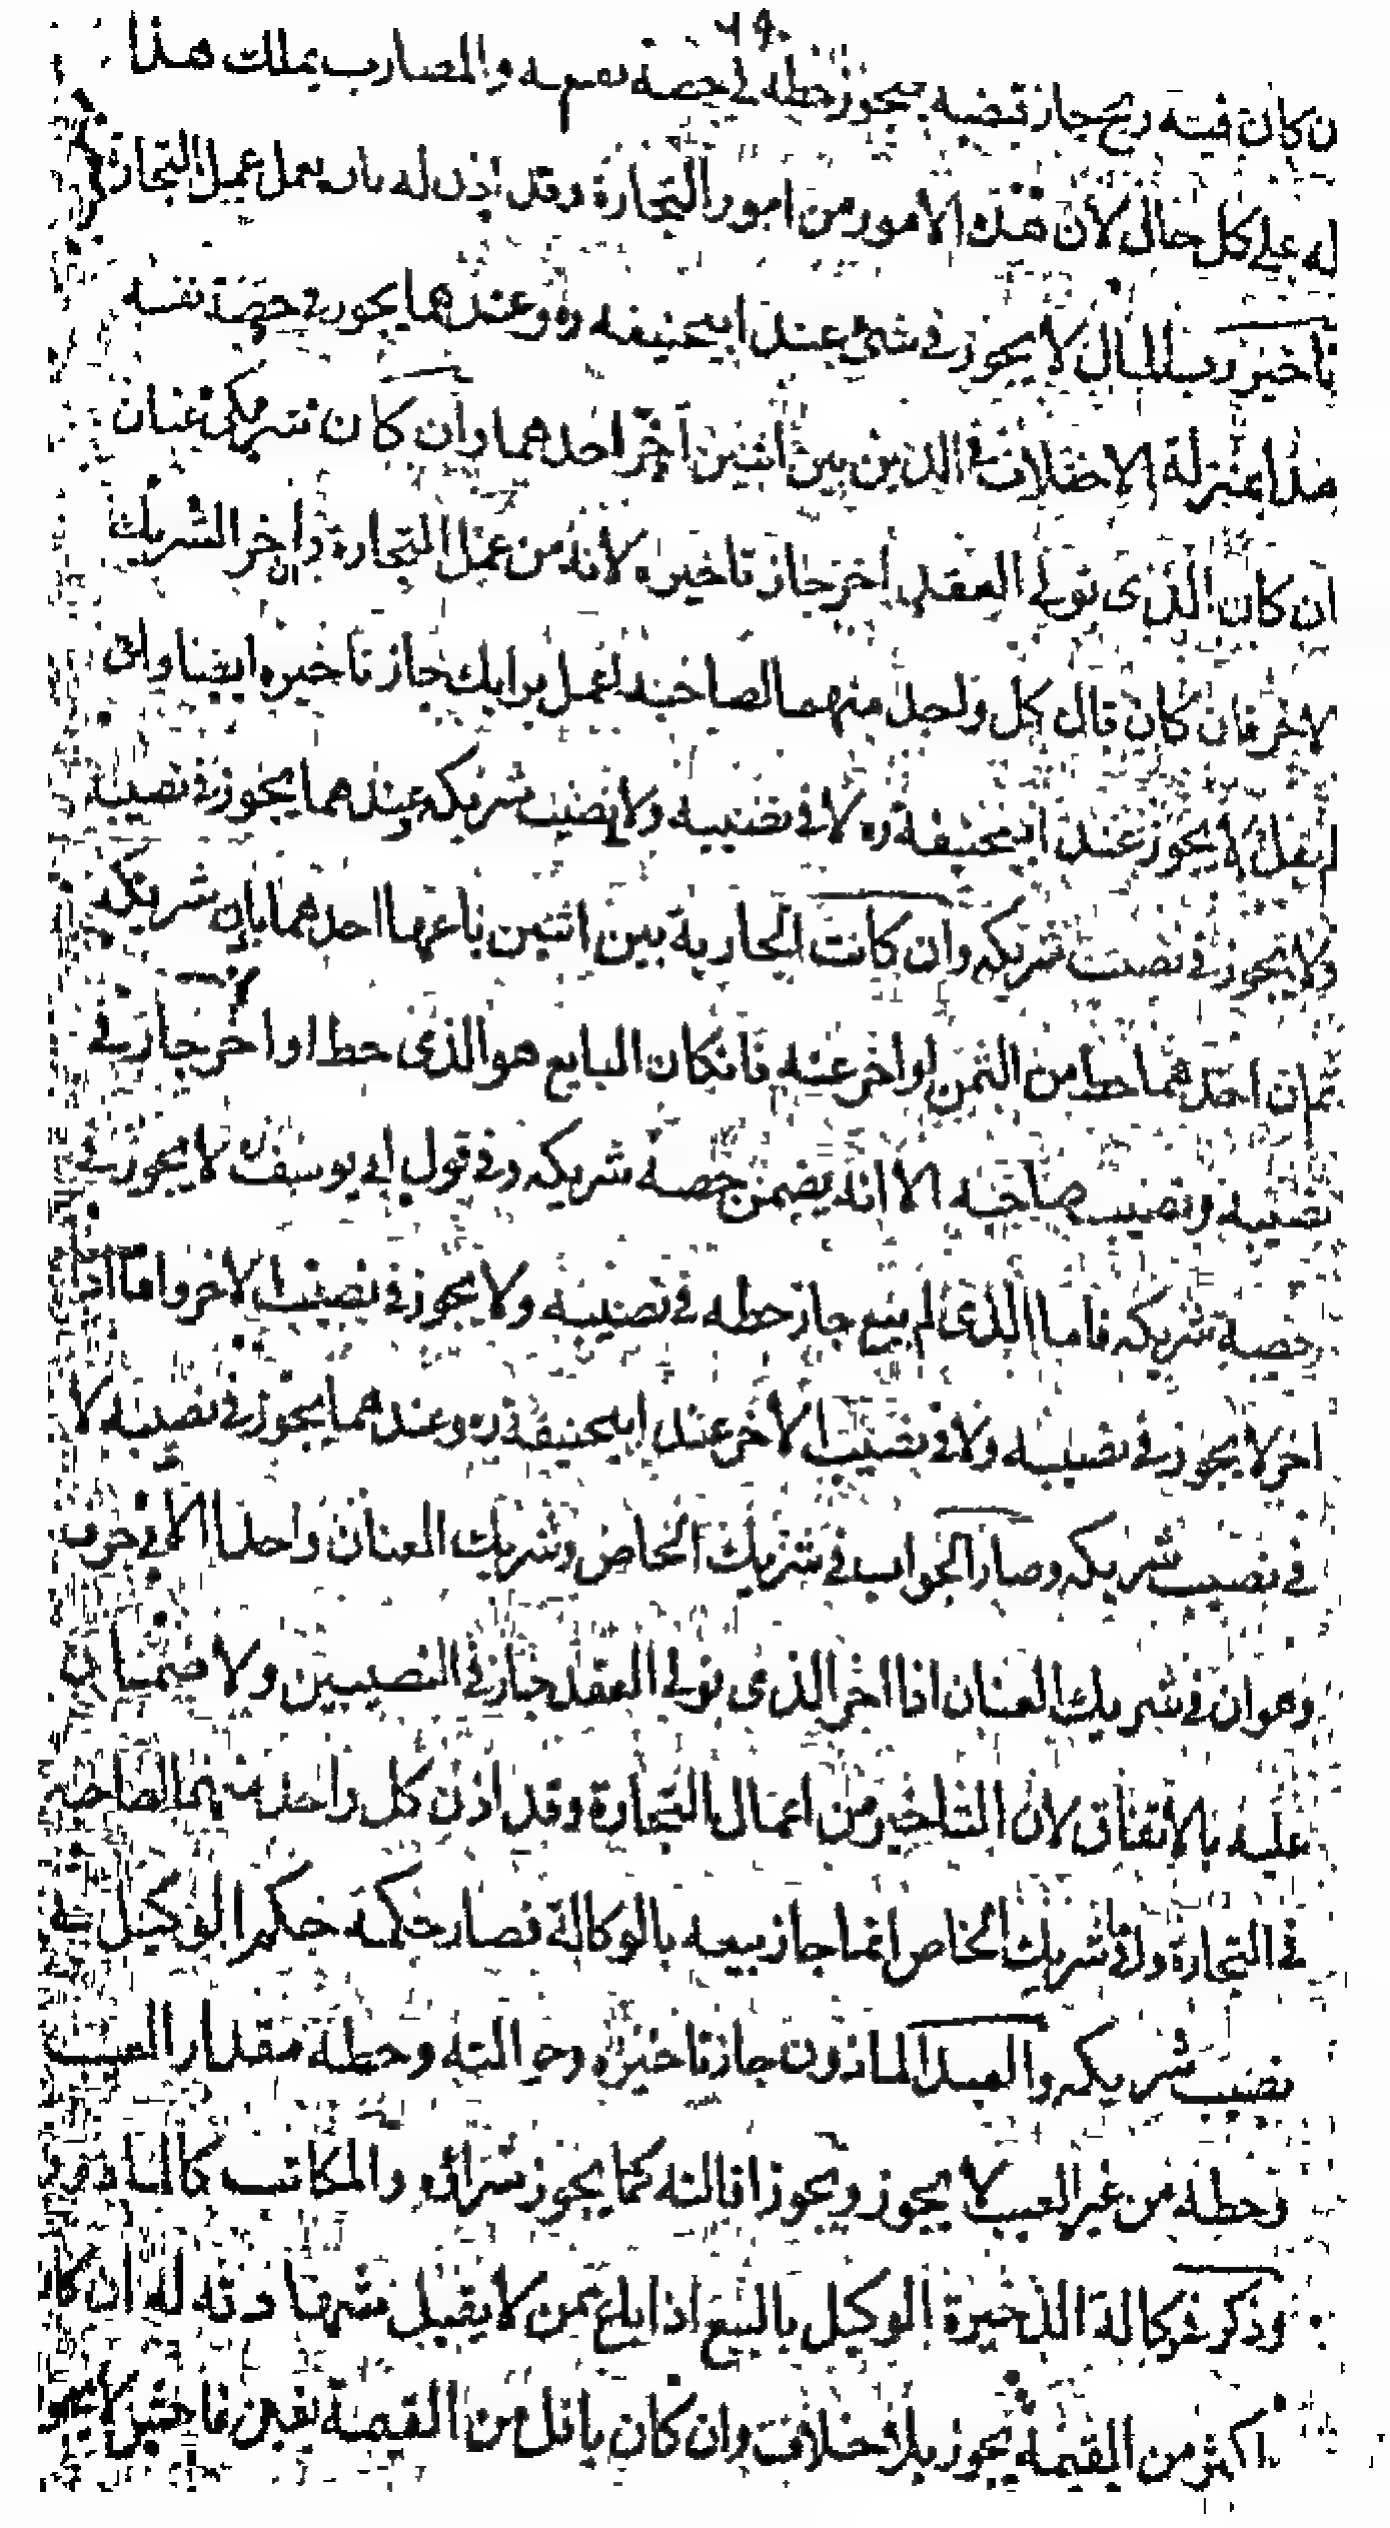 ٦٩
ن كان فيه ربح جاز قبضه يجوز حطه في حصة نفسه والمضارب يملك هذا
له على كل حال لأن هذه الامور من امور التجارة وقد اذن له بان يعمل عمل التجارة
تاخير رب المال لا يجوز في شئ عند ابيحنيفه ره وعندهما يجوز في حصة نفسه
هذا بمنزلة الاختلاف في الدين بين اثنين اخر احدهما وان كان شريكي عنان
ان كان الذي تولى العقد اخر جاز تاخيره لانه من عمل التجارة وان اخر الشريك
لاخر فان كان قال كل واحد منهما لصاحبه اعمل برايك جاز تاخيره ايضا وان
لم يقل لا يجوز عند ابيحنيفة ره لا في نصيبه ولا نصيب شريكه وعندهما يجوز في نصيبه
ولا يجوز في نصيب شريكه وان كانت الجارية بين اثنين باعها احدهما باذن شريكه
ثم ان احدهما حط من الثمن او اخر عنه فانكان البايع هو الذي حط او اخر جاز في
نصيبه ونصيب صاحبه الا انه يضمن حصة شريكه وفي قول ابي يوسف ره لا يجوز في
حصة شريكه فاما الذي لم يبع جاز حطه في نصيبه ولا يجوز في نصيب الاخر واما اذا
اخر لا يجوز في نصيبه ولا في نصيب الاخر عند ابيحنيفة ره وعندهما يجوز في نصيبه لا
في نصيب شريكه وصار الجواب في شريك الخاص وشريك العنان واحدا الا في حرف
وهو ان في شريك العنان اذا اخر الذي تولى العقد جاز في النصيبين ولا ضمان
عليه بالاتفاق لان التاخير من اعمال التجارة وقد اذن كل واحد منهما لصاحبه
في التجارة واما شريك الخاص انما جاز بيعه بالوكالة فصار حكمه حكم الوكيل في
نصيب شريكه والعبد الماذون جاز تاخيره وحوالته وحطه مقدار العيب
وحطه من غير العيب لا يجوز ويجوز اقالته كما يجوز شراؤه والمكاتب كالماذون
وذكر في وكالة الذخيرة الوكيل بالبيع اذا باع ممن لا يقبل شهادته له ان كان
اكثر من القيمه يجوز بلا خلاف وان كان باقل من القيمة بغبن فاحش لا يجوز